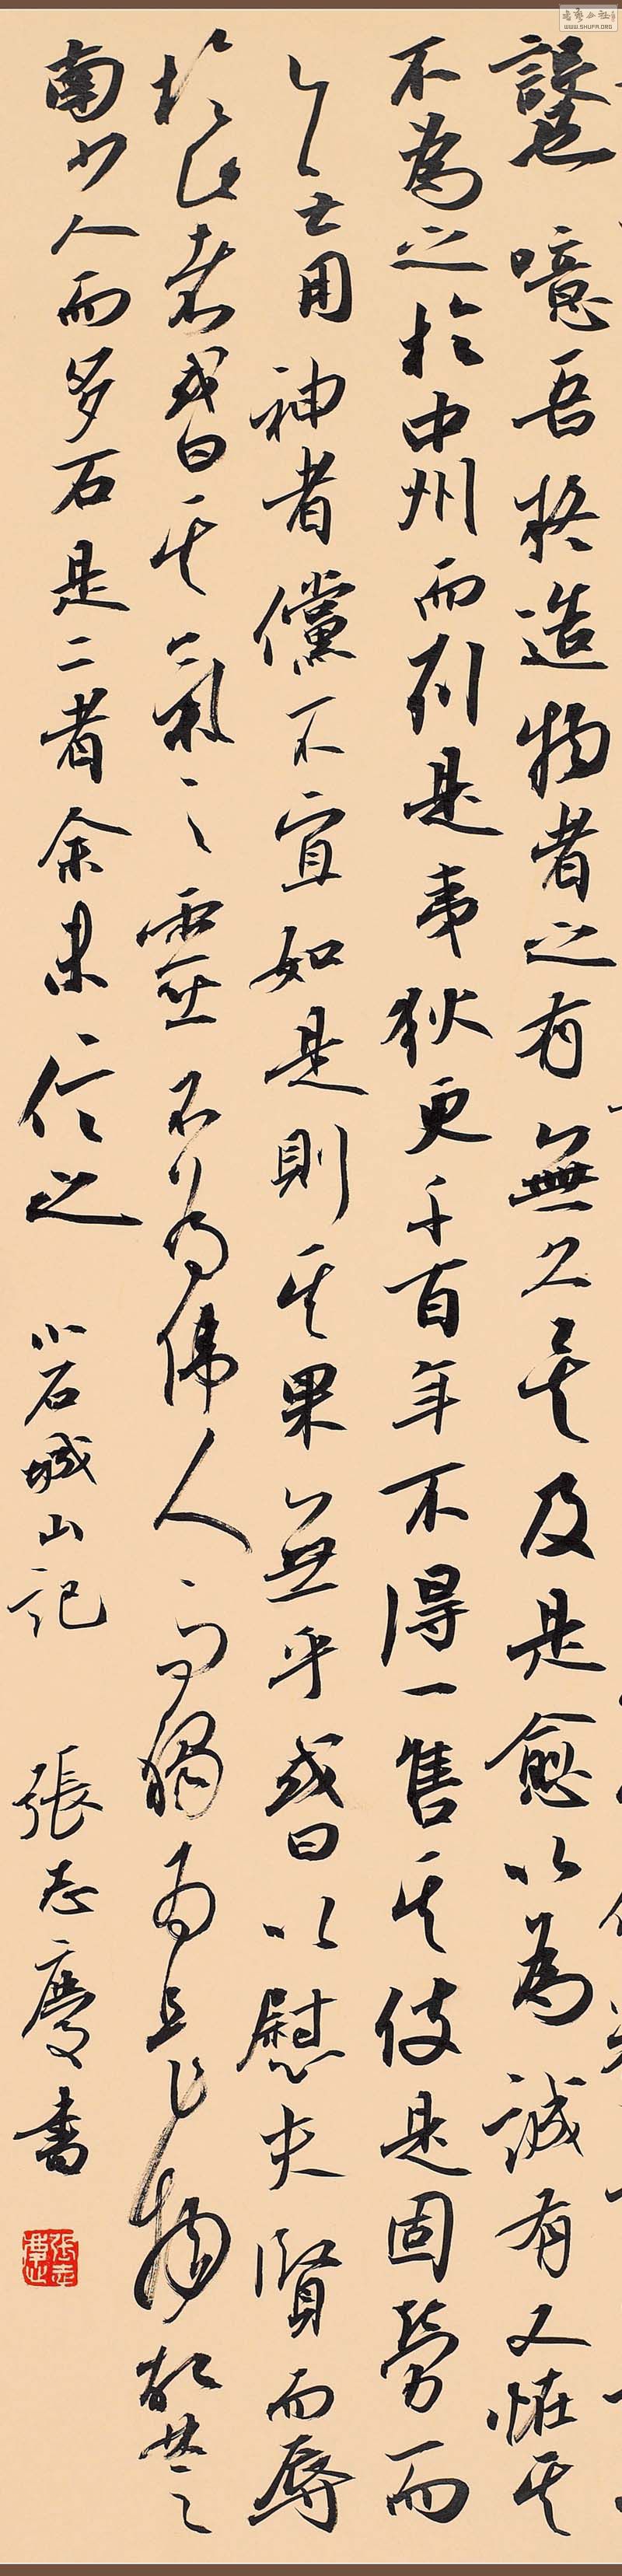 設也噫吾疑造物者之有無久矣及是愈以為誠有又怪其
不為之於中州而列是夷狄更千百年不得一售其伎是固勞而
用神者儻不宜如是則其果無乎或曰以慰夫賢而辱
於此者或曰其氣之靈不為偉人而獨為是物故楚之
南少人而多石是二者余未信之 小石城山記 張志慶書
WWW.SHUFA.ORG